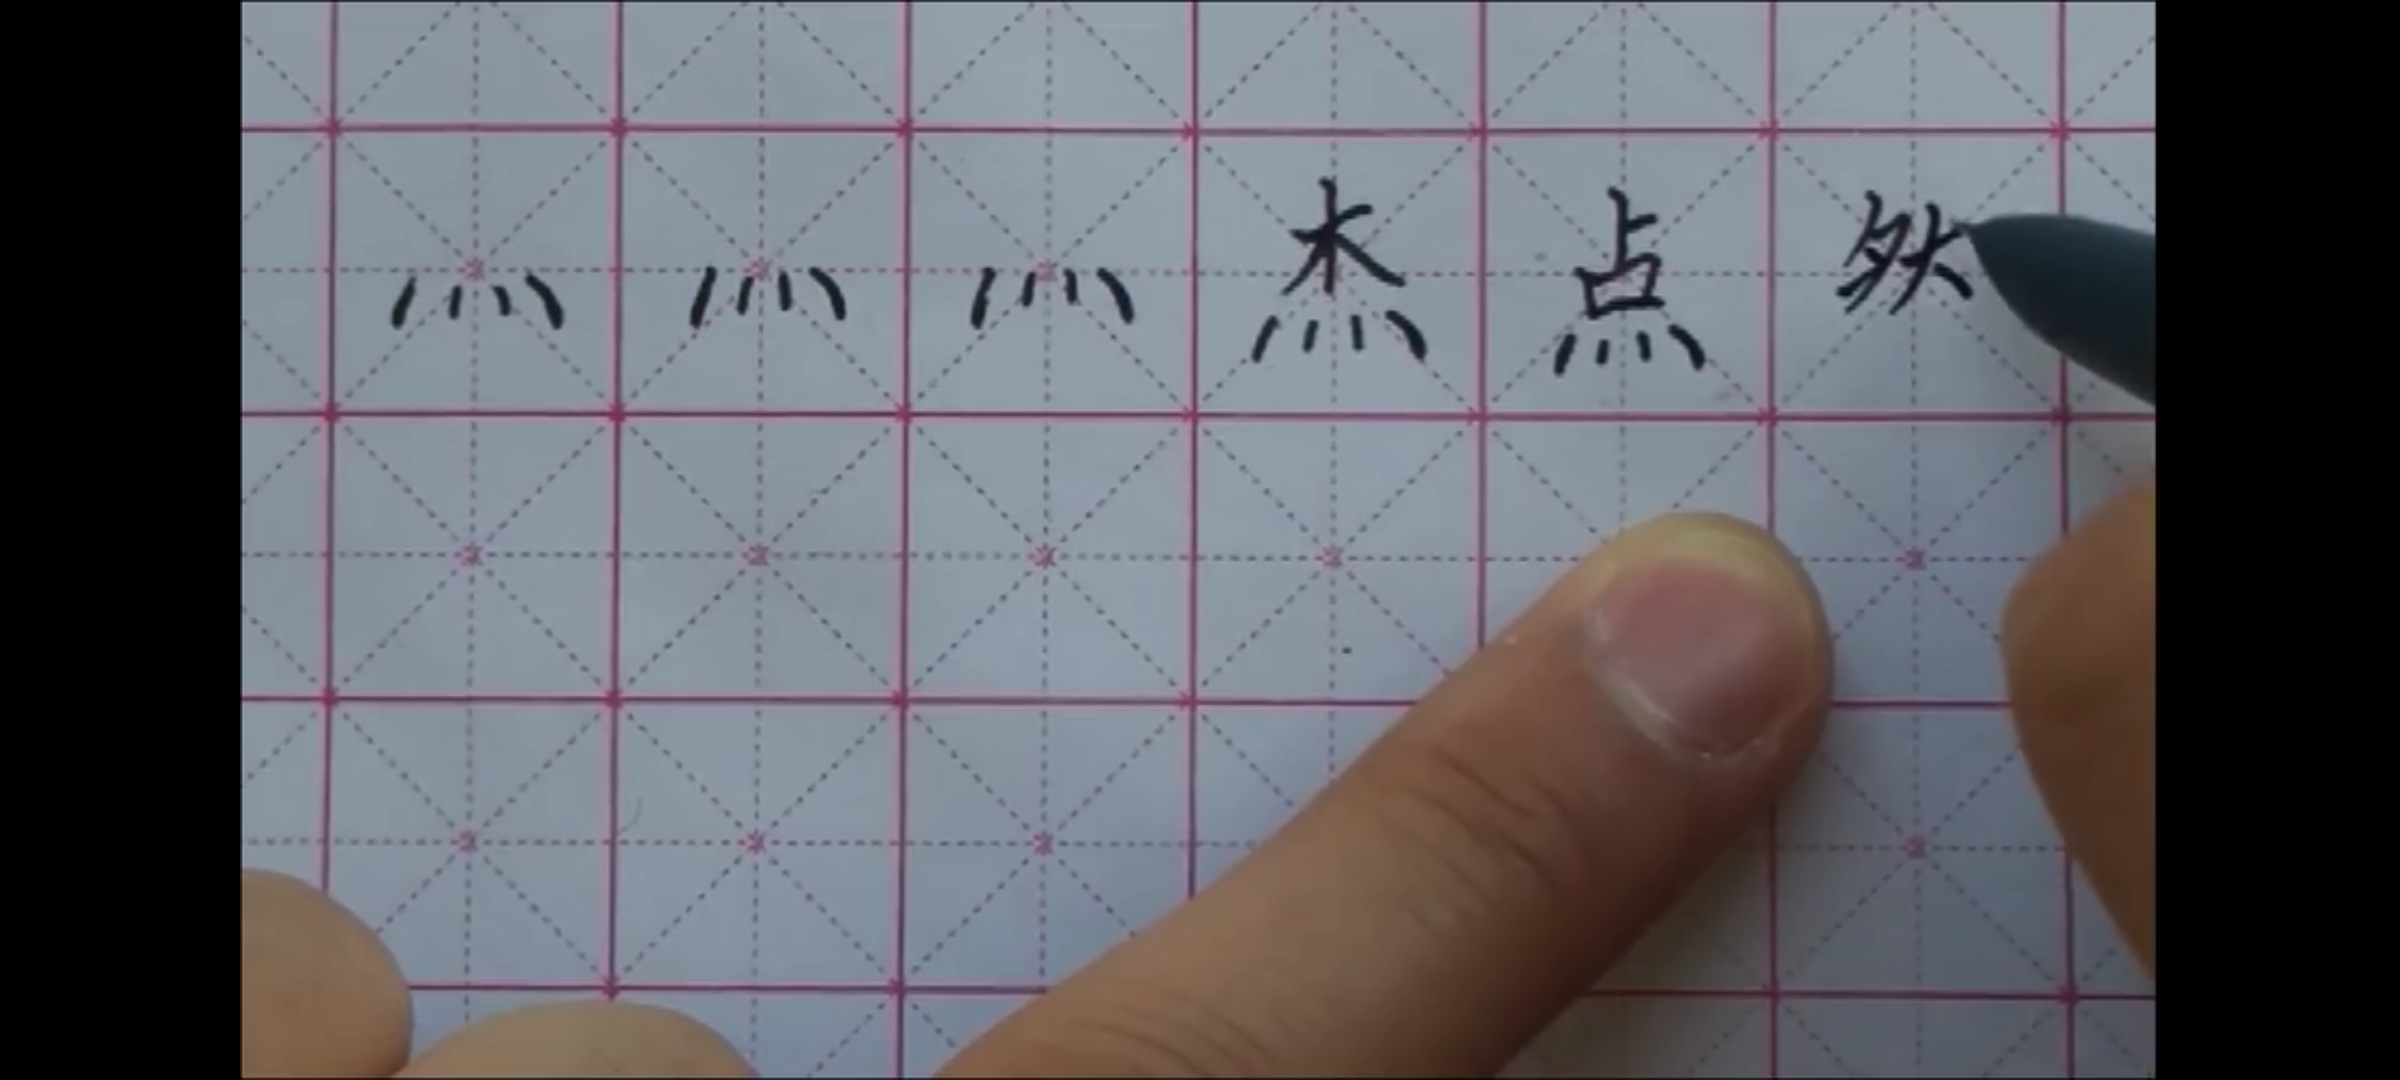 灬 灬 灬 杰 点 肰